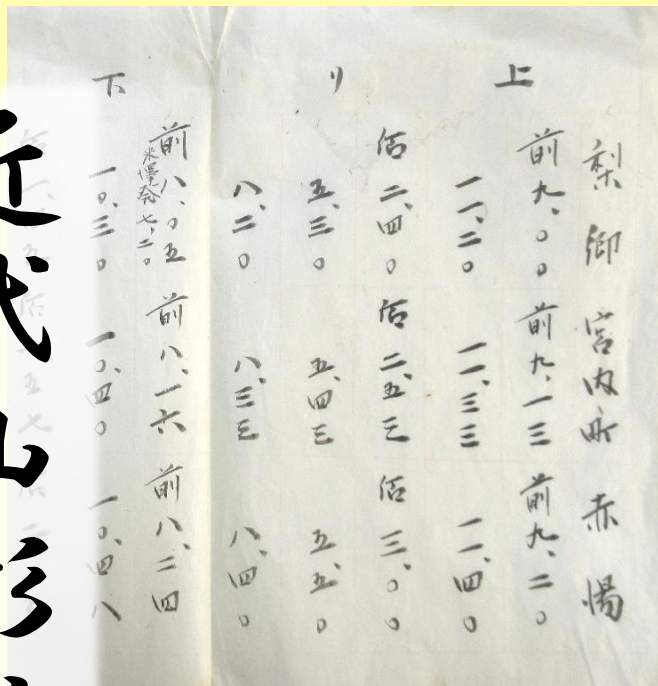 梨郷 宮内町 赤湯
上 前九、〇〇 前九、一三 前九、二〇
一一、二〇 一一、三三 一一、四〇
后二、四〇 后二、五三 后三、〇〇
り 五、三〇 五、四三 五、五〇
八、二〇 八、三三 八、四〇
前八、〇五 前八、一六 前八、二四
米澤発七、二〇
下 一〇、三〇 一〇、四〇 一〇、四八
近代山形